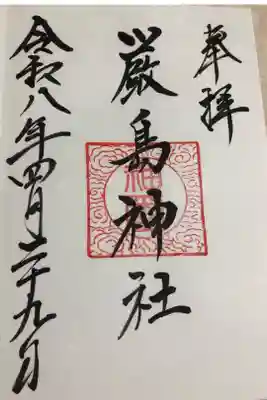 奉拝
厳島神社
令和八年四月二十九日